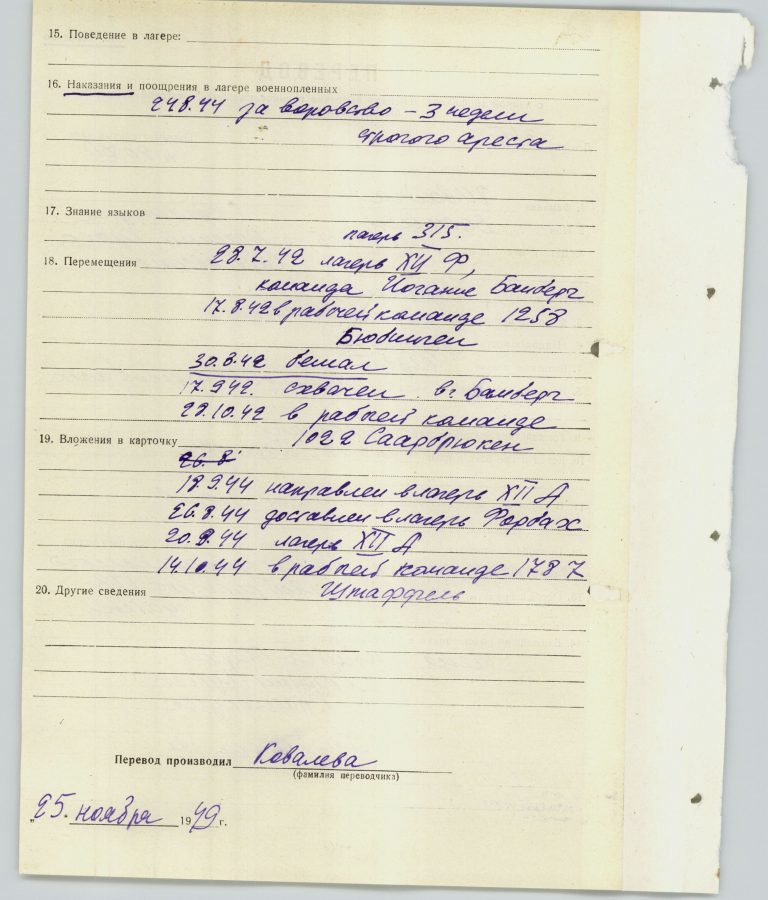 15. Поведение в лагере:
16. Наказания и поощрения в лагере военнопленных
24.8.44 за воровство – 3 недели
строгого ареста
17. Знание языков
лагерь 315.
18. Перемещения 28.7.42 лагерь XII Ф,
команда Иоганнс Бамберг
17.8.42 в рабочей команде 1258
30.8.42 бежал
17.942. схвачен в г. Бамберг
29.10.42 в рабочей команде
19. Вложения в карточку 1022 Саарбрюкен
26.8
18.9.44 направлен в лагерь XII А
26.8.44 доставлен в лагерь Форбах
20.9.44 лагерь XII А
14.10.44 в рабочей команде 1787
20. Другие сведения Штаффель
Перевод производил Ковалева
(фамилия переводчика)
„25. ноября 1949 г.